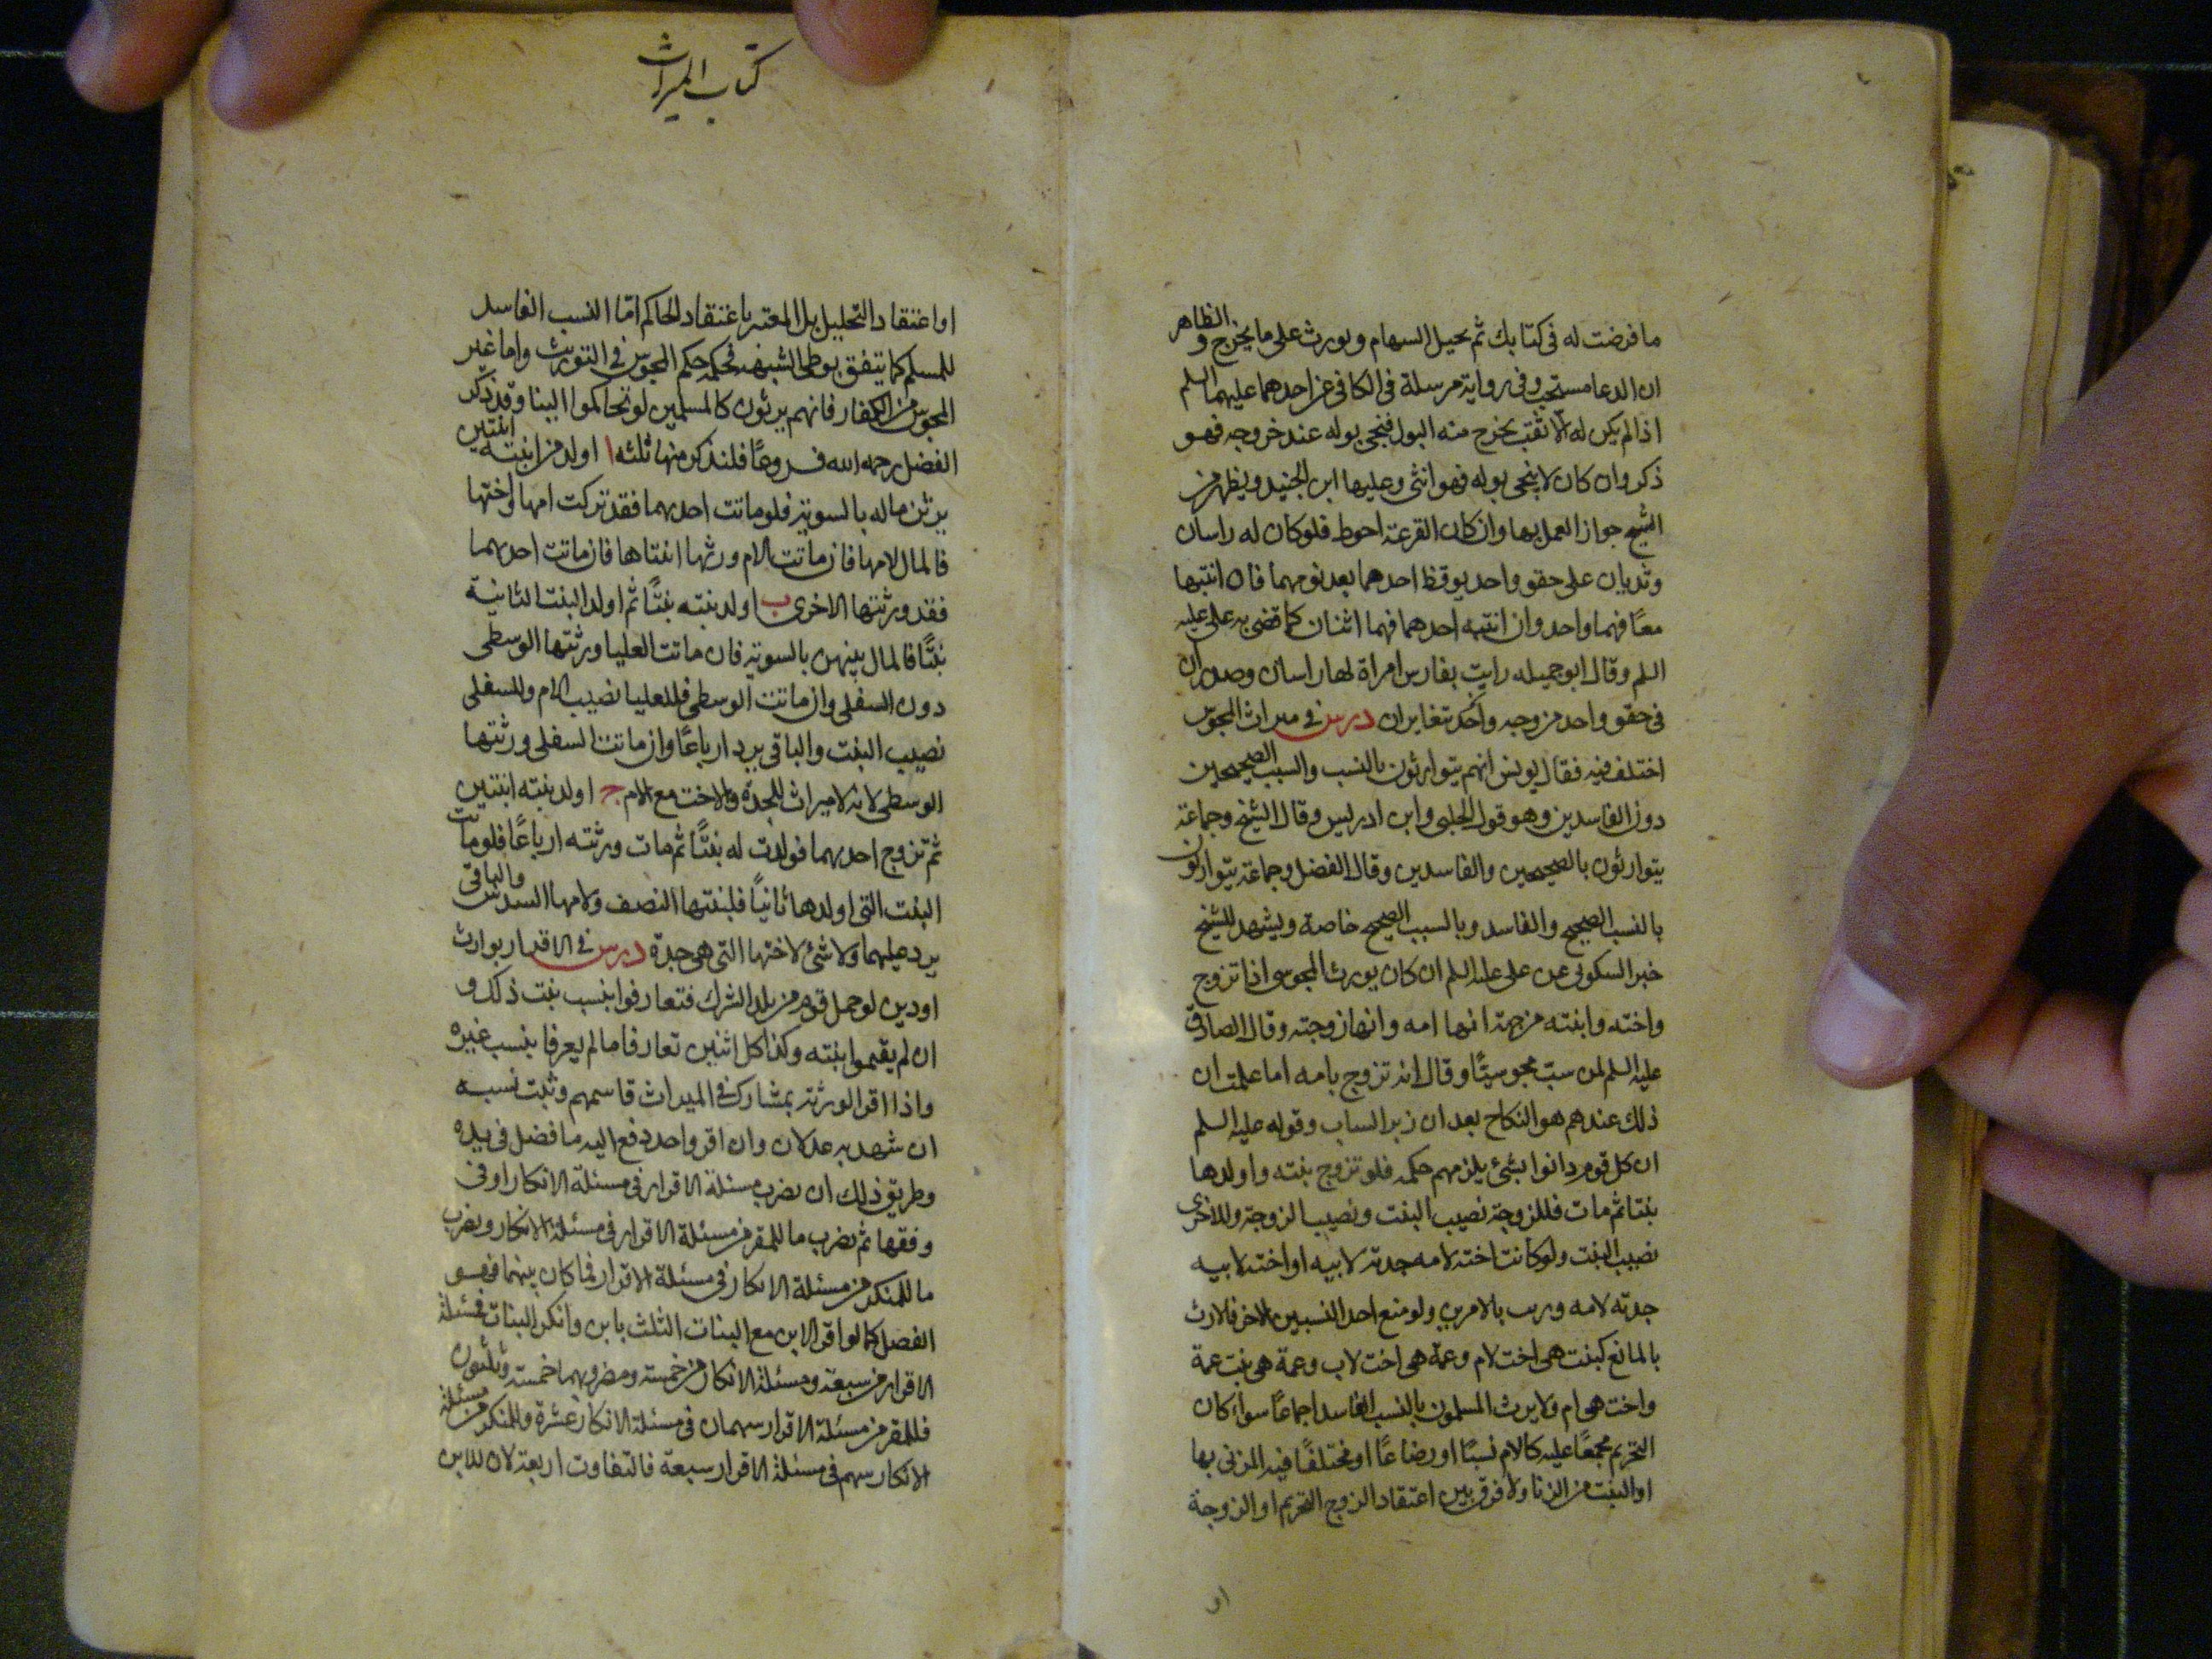 ما فرضت له فى كتابك ثم يحيل السهام و يورث على ما يخرج و الظاهر
ان الدعا مستحب وفى رواية مرسلة فى الكافى عن احدهما عليهما السلم
اذا لم يكن له الا ثقب يخرج منه البول فنحى بوله عند خروجه فهو
ذكر وان كان لا ينحى بوله فهو انثى وعليها ابن الجنيد ويظهر من
الشيخ جواز العمل بها وان كان القرعة احوط فلو كان له راسان
وثديان على حقو واحد يوقظ احدهما بعد نومهما فان انتبها
معًا فهما واحد وان انتبه احدهما فهما اثنان كما قضى به على عليه
السلم وقال ابو جميله رايت بفارس امراة لها راسان وصدران
فى حقو واحد مزوجه وا تغايران درس فى ميراث المجوس
اختلف فيه فقال يونس انهم يتوارثون بالنسب والسبب الصحيحين
دون الفاسدين وهو قول الحلبى وابن ادريس وقال الشيخ وجماعة
يتوارثون بالصحيحين والفاسدين وقال الفضل وجماعة يتوارثون
بالنسب الصحيح والفاسد وبالسبب الصحيح خاصة ويشهد للشيخ
خبر السكونى عن على عليه السلم ان كان يورث المجوسى اذا تزوج
واخته وابنته من جهة انها امه وانها زوجته وقال الصادق
عليه السلم لمن سب مجوسيًا وقال انه تزوج بامه اما علمت ان
ذلك عندهم هو النكاح بعد ان زبر الساب وقوله عليه السلم
ان كل قوم دانوا بشئ يلزمهم حكمه فلو تزوج بنته واولدها
بنتا ثم مات فللزوجة نصيب البنت ونصيب الزوجة وللاخرى
نصيب البنت ولو كانت اخته لامه جدته لابيه او اخته لابيه
جدته لامه ورث بالامرين ولو منع احد النسبين الاخر فالارث
بالمانع كبنت هى اخت لام وعمة هى اخت لاب وعمة هى بنت عمة
واخت هى ام ولا يرث المسلمون بالنسب الفاسد اجماعًا سواء كان
التحريم مجمعًا عليه كالام نسبًا او رضاعًا او مختلفًا فيه المزنى بها
او البنت من الزنا ولا فرق بين اعتقاد الزوج التحريم او الزوجة
او
كتاب الميراث
او اعتقاد التحليل بل المعتبر باعتقاد الحاكم امّا النسب الفاسد
للمسلم كما يتفق بوطى الشبهة فحكمه حكم المجوس فى التوريث واما غير
المجوس من الكفار فانهم يرثون كالمسلمين لو تحاكموا الينا وقد ذكر
الفضل رحمه الله فروعًا فلنذكر منها ثلثه ا اولد من ابنته ابنتين
يرثن ماله بالسوية فلو ماتت احديهما فقد تركت امها واختها
فالمال لامها فان ماتت الام ورثها ابنتاها فان ماتت احديهما
فقد ورثتها الاخرى ب اولد بنته بنتًا ثم اولد البنت الثانية
بنتًا فالمال بينهن بالسوية فان ماتت العليا ورثتها الوسطى
دون السفلى وان ماتت الوسطى فللعليا نصيب الام وللسفلى
نصيب البنت والباقى يرد ارباعًا وان ماتت السفلى ورثتها
الوسطى لانه لا ميراث للجدة والاخت مع الام ج اولد بنته ابنتين
ثم تزوج احديهما فولدت له بنتًا ثم مات ورثته ارباعًا فلو ماتت
البنت التى اولدها ثانيًا فلبنتها النصف ولامها السدس والباقى
يرد عليهما ولا شئ لاختها التى هى جدة درس فى الاقرار بوارث
او دين لو حمل قوم من بلد الشرك فتعارفوا بنسب بنت ذلك و
ان لم يقيموا بينة وكذا كل اثنين تعارفا ما لم يعرفا بنسب غيره
واذا اقر الورثة بمشارك فى الميراث قاسمهم وثبت نسبه
ان شهد به عدلان وان اقر واحد دفع اليه ما فضل فى يده
وطريق ذلك ان يضرب مسئلة الاقرار فى مسئلة الانكار او فى
وفقها ثم يضرب ما للمقر من مسئلة الاقرار فى مسئلة الانكار ويضرب
ما للمنكر من مسئلة الانكار فى مسئلة الاقرار فما كان بينهما فهو
الفضل كما لو اقر الابن مع البنات الثلث بابن وانكر البنات فمسئلة
الاقرار من سبعة ومسئلة الانكار من خمسة ومضروبهما خمسة وثلثون
فللمقر من مسئلة الاقرار سهمان فى مسئلة الانكار عشرة وللمنكر من مسئلة
الانكار سهم فى مسئلة الاقرار سبعة فالتفاوت اربعة لان للابن